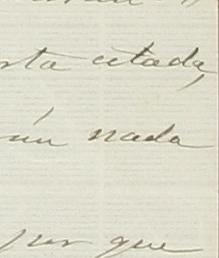 rta citada,
ún nada
por que